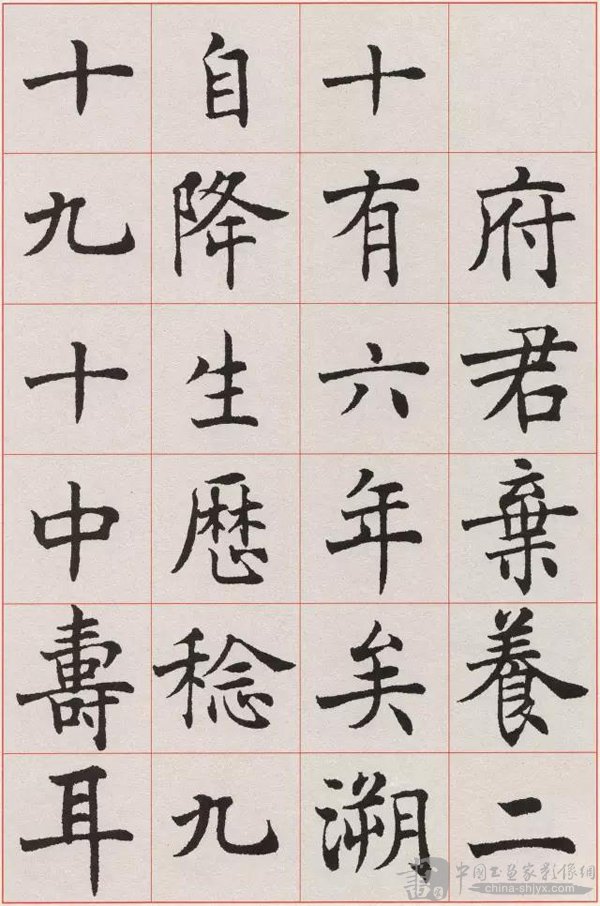 府君棄養二
十有六年矣溯
自降生歷稔九
十九十中壽耳
中国书画家影像網
china-shjyx.com